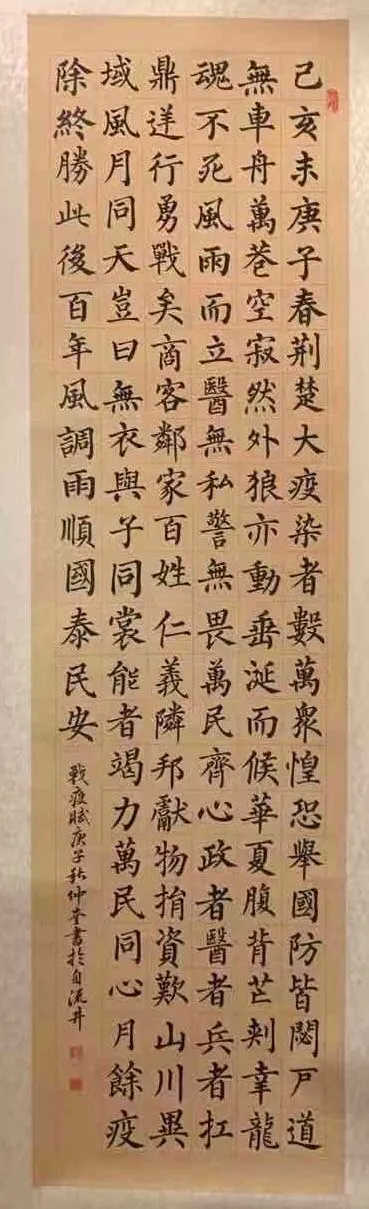 己亥末庚子春荊楚大疫染者數萬衆惶恐舉國防皆閟戶道
無車舟萬巷空寂然外狼亦動垂涎而候華夏腹背芒刺幸龍
魂不死風雨而立醫無私警無畏萬民齊心政者醫者兵者扛
鼎逆行勇戰矣商客鄰家百姓仁義隣邦獻物捐資歎山川異
域風月同天豈曰無衣與子同裳能者竭力萬民同心月餘疫
除終勝此後百年風調雨順國泰民安
戰疫賦庚子秋仲書於自流井